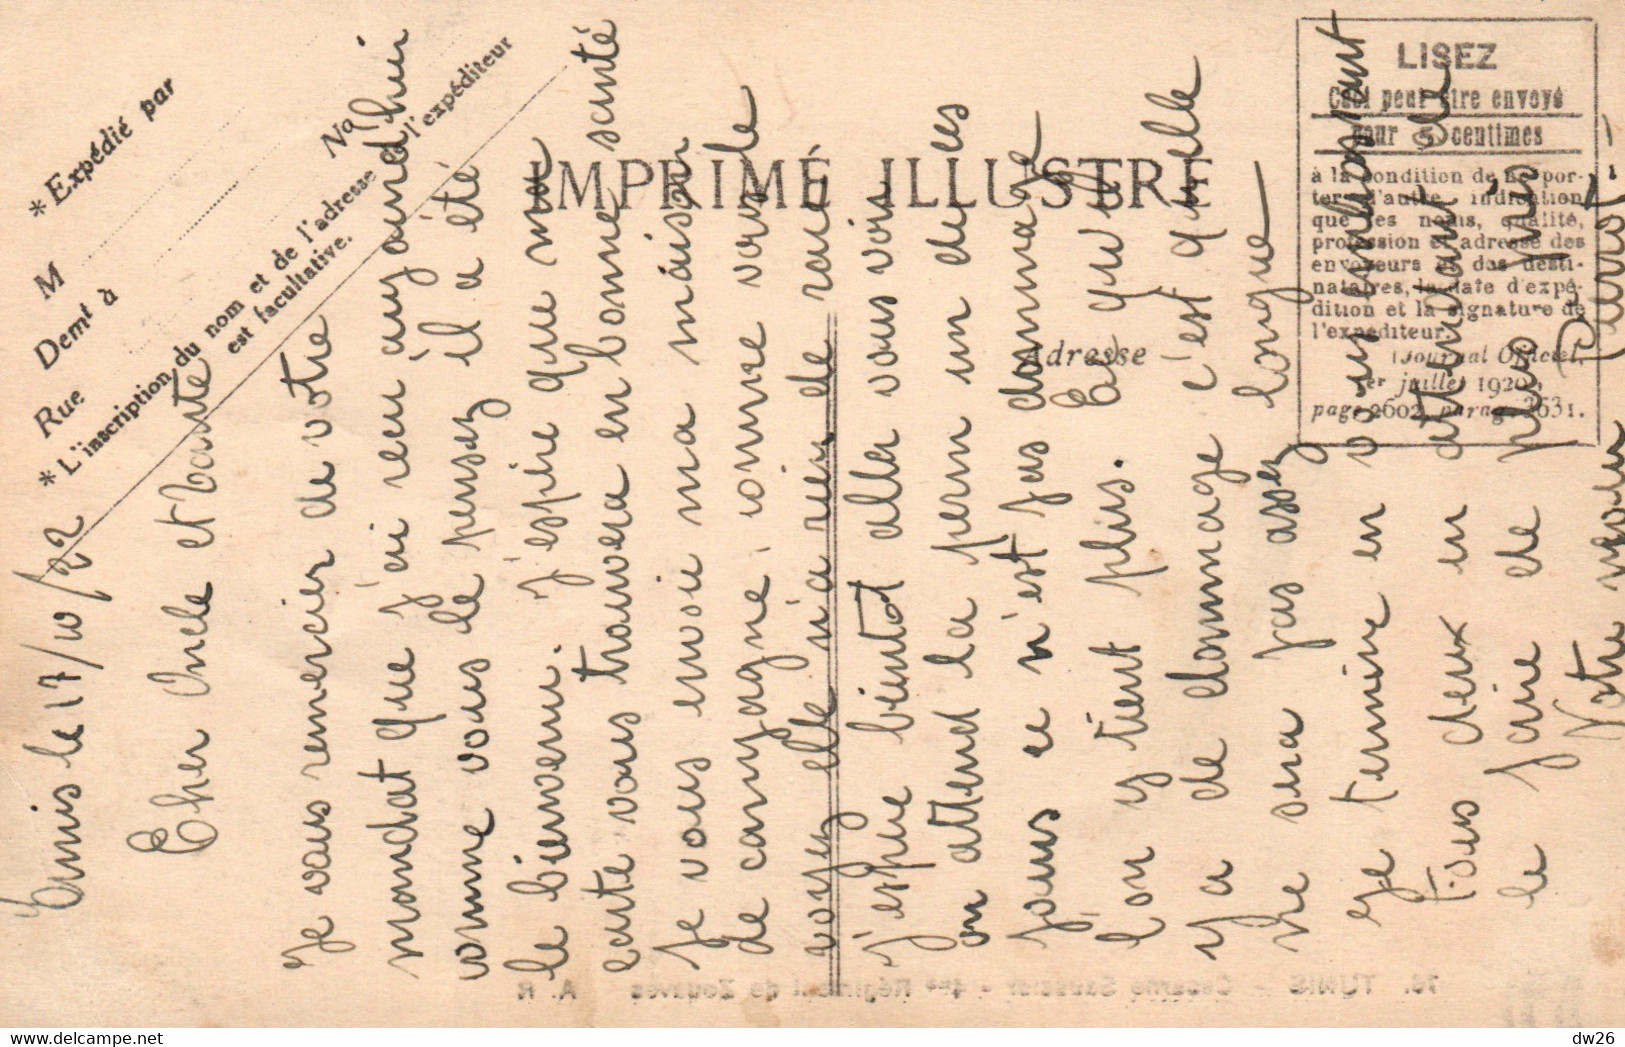 Tunis le 17/10/22
Cher Oncle et Tante
Je vous remercier de votre
mandat que j'ai reçu aujourd'hui
comme vous le pensez il a été
le bienvenu. J'espère que ma
carte vous trouvera en bonne santé
Je vous envoie ma maison
de campagne, comme vous le
voyez elle n'a rien de rare
J'espère bientot alla vous voir
on attend la perm un de ces
jours ce n'est pas dommage
l'on y tient plus.
y a de dommage c'est qu'elle
ne sera pas assez longue
Je termine en vous embrassant
tous deux en attendant de
le faire de
Votre neveu
Pierrot.
* Expédié par
M
Demt à
Rue No
* L'inscription du nom et de l'adresse de l'expéditeur
est facultative.
IMPRIMÉ ILLUSTRÉ
Adresse
LISEZ
Ceci peut être envoyé
pour 5 centimes
à la condition de ne por-
ter d'autre indication
que les noms, qualité,
profession et adresse des
envoyeurs et des desti-
nataires, la date d'expé-
dition et la signature de
l'expéditeur.
(Journal Officiel,
1er juillet 1920,
page 2602, parag. 3631.
76. TUNIS - Caserne Saussier - 4me Régiment de Zouaves A. R
dw26